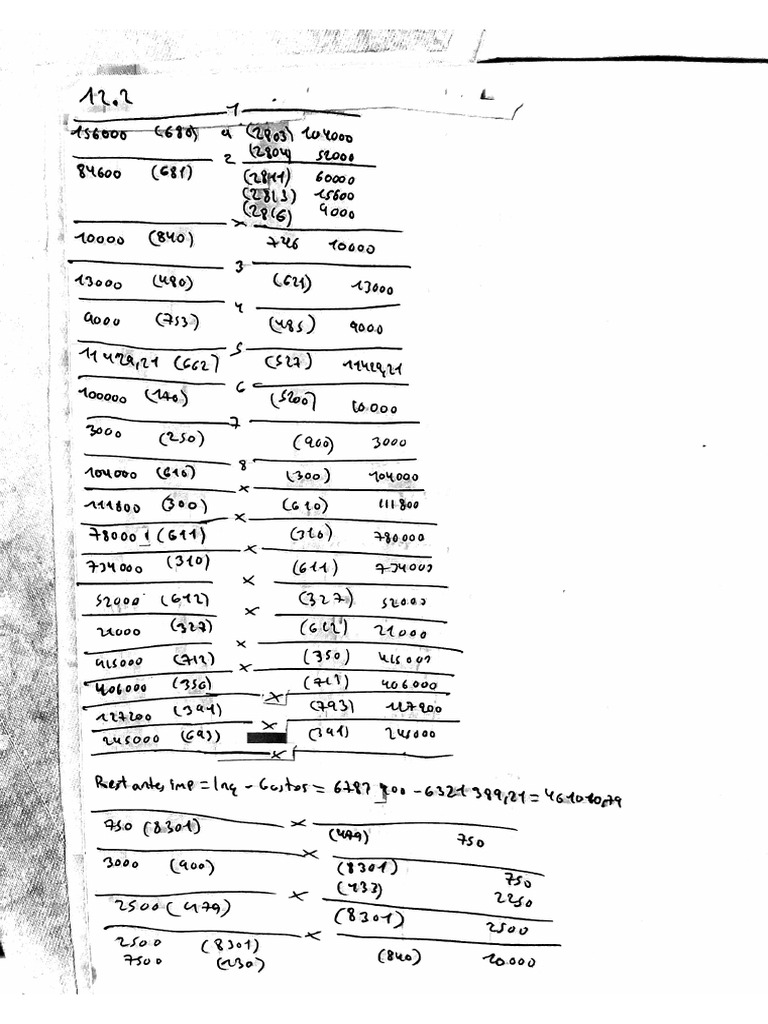 12.2
1
156000 (680) a (2803) 104000
(2804) 52000
2
84600 (681) (2811) 60000
(2813) 15600
(2816) 9000
x
10000 (840) 746 10000
3
13000 (480) (621) 13000
4
9000 (753) (485) 9000
5
11429,21 (662) (527) 11429,21
6
100000 (170) (5200)
7
3000 (250) (900) 3000
8
104000 (610) (300) 104000
x
111800 (300) (610) 111800
x
78000 (611) (310) 780000
x
734000 (310) (611) 734000
x
52000 (612) (327) 52000
x
21000 (327) (612) 21000
x
415000 (712) (350) 415000
x
406000 (350) (711) 406000
x
127200 (391) (793) 127200
x
245000 (693) (391) 245000
x
Restantes imp = Ing - Gastos = 6787 - 6321389,21 = 461010,79
x
750 (8301) (479) 750
x
3000 (900) (8301) 750
(133) 2250
x
2500 (479) (8301) 2500
x
2500 (8301)
7500 (130) (840) 10.000